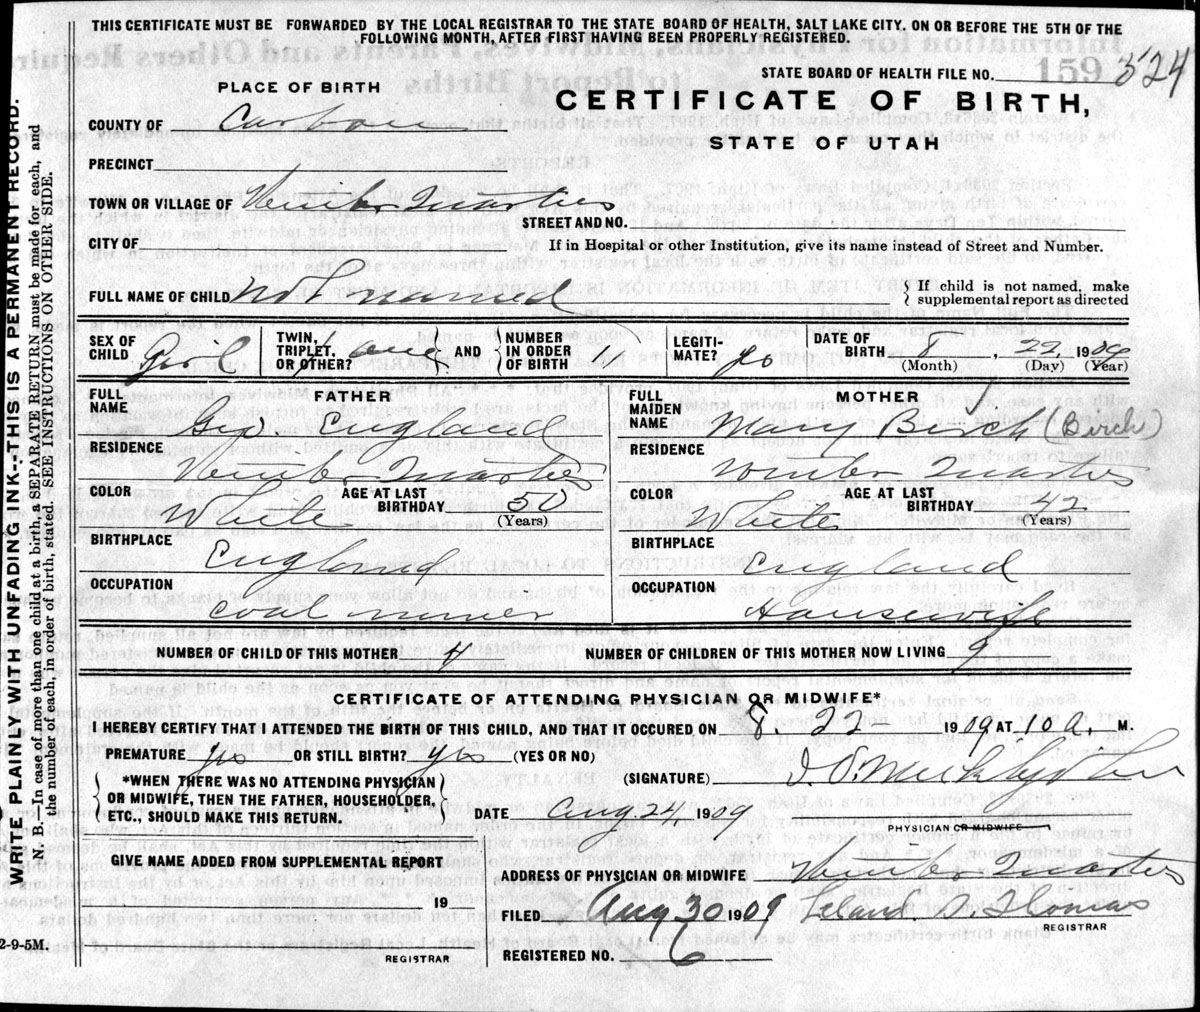 THIS CERTIFICATE MUST BE FORWARDED BY THE LOCAL REGISTRAR TO THE STATE BOARD OF HEALTH, SALT LAKE CITY, ON OR BEFORE THE 5TH OF THE
FOLLOWING MONTH, AFTER FIRST HAVING BEEN PROPERLY REGISTERED.
STATE BOARD OF HEALTH FILE NO. 159 524
PLACE OF BIRTH
CERTIFICATE OF BIRTH,
STATE OF UTAH
COUNTY OF Carbon
PRECINCT
TOWN OR VILLAGE OF Winter Quarters
STREET AND NO.
CITY OF
If in Hospital or other Institution, give its name instead of Street and Number.
FULL NAME OF CHILD Not named
If child is not named, make
supplemental report as directed
SEX OF CHILD Girl
TWIN, TRIPLET, OR OTHER? one AND NUMBER IN ORDER OF BIRTH
LEGITIMATE? yes
DATE OF BIRTH 8, 22, 1909
(Month) (Day) (Year)
FATHER
FULL NAME Geo England
RESIDENCE Winter Quarters
COLOR White AGE AT LAST BIRTHDAY 50
(Years)
BIRTHPLACE England
OCCUPATION coal miner
MOTHER
FULL MAIDEN NAME Mary Birch (Birch)
RESIDENCE Winter Quarters
COLOR White AGE AT LAST BIRTHDAY 42
(Years)
BIRTHPLACE England
OCCUPATION Housewife
NUMBER OF CHILD OF THIS MOTHER NUMBER OF CHILDREN OF THIS MOTHER NOW LIVING 9
CERTIFICATE OF ATTENDING PHYSICIAN OR MIDWIFE*
I HEREBY CERTIFY THAT I ATTENDED THE BIRTH OF THIS CHILD, AND THAT IT OCCURED ON 8. 22 1909 AT 10 a. M.
PREMATURE yes OR STILL BIRTH? yes (YES OR NO)
(SIGNATURE)
*WHEN THERE WAS NO ATTENDING PHYSICIAN
OR MIDWIFE, THEN THE FATHER, HOUSEHOLDER,
ETC., SHOULD MAKE THIS RETURN.
DATE Aug. 24, 1909
PHYSICIAN OR MIDWIFE
GIVE NAME ADDED FROM SUPPLEMENTAL REPORT
19
REGISTRAR
ADDRESS OF PHYSICIAN OR MIDWIFE Winter Quarters
FILED Aug 30 1909 Thomas
REGISTRAR
REGISTERED NO. 6
WRITE PLAINLY WITH UNFADING INK--THIS IS A PERMANENT RECORD.
N. B.—In case of more than one child at a birth, a SEPARATE RETURN must be made for each, and
the number of each, in order of birth, stated. SEE INSTRUCTIONS ON OTHER SIDE.
2-9-5M.